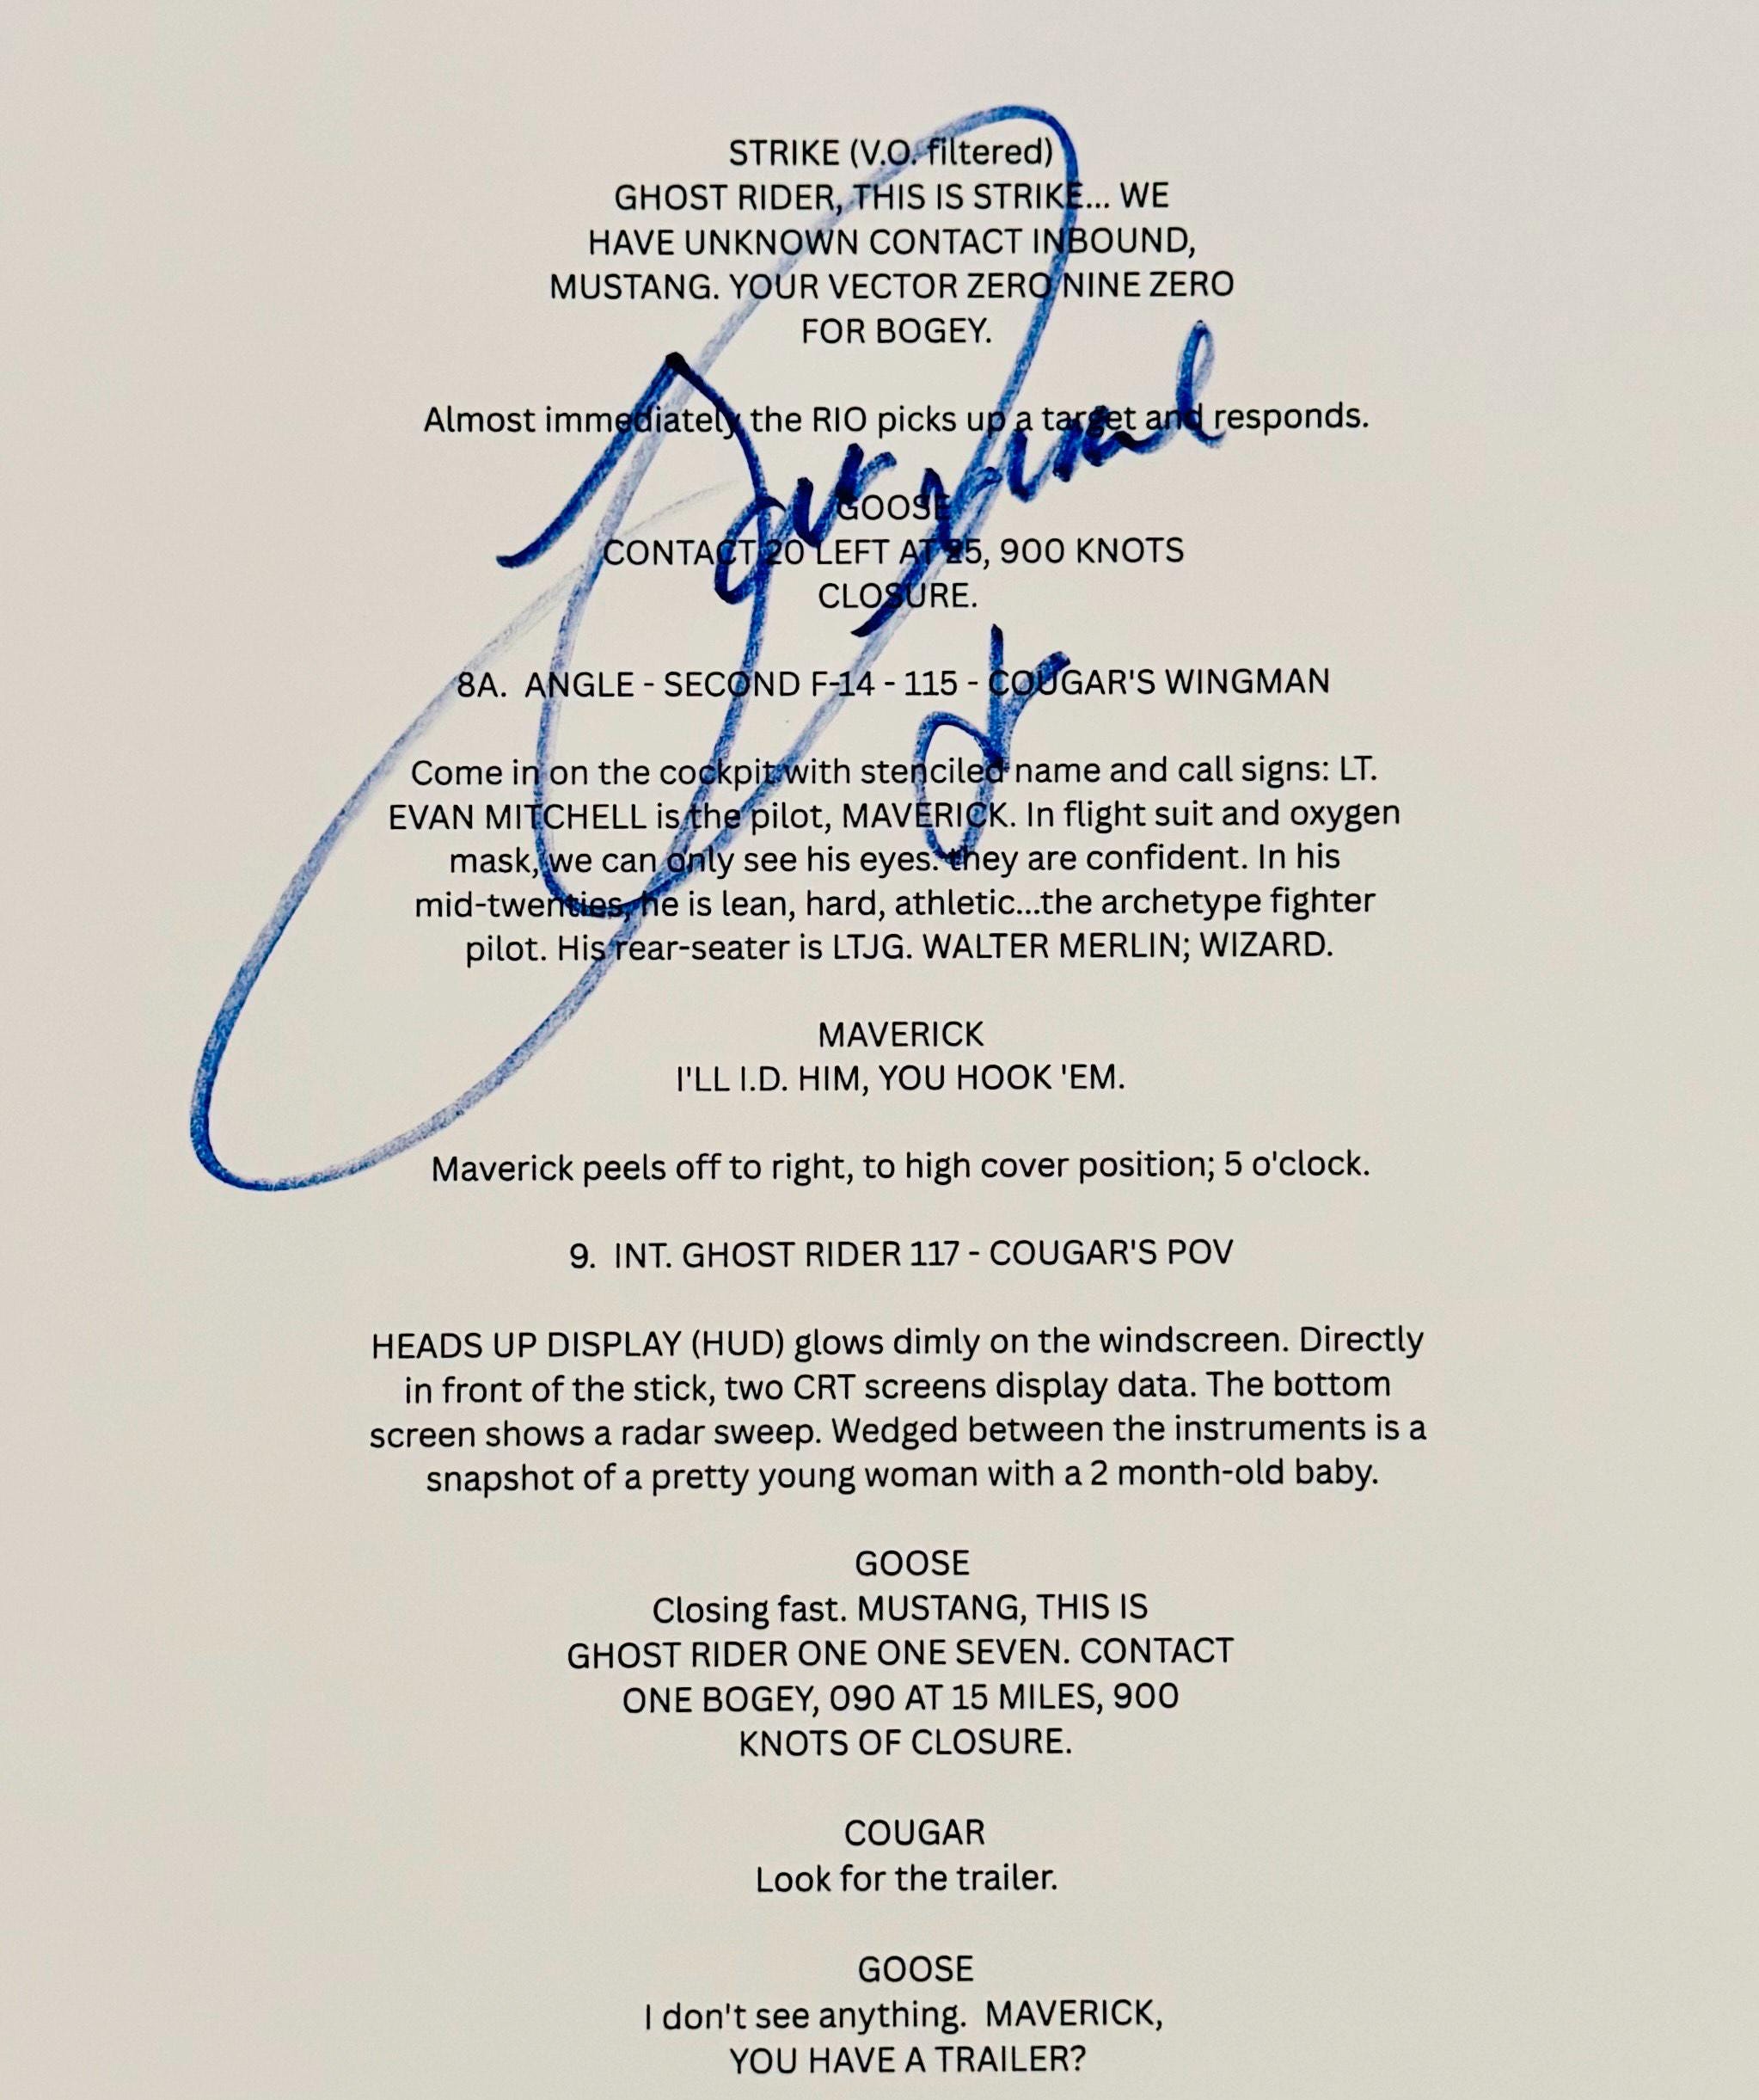 STRIKE (V.O. filtered)
GHOST RIDER, THIS IS STRIKE... WE
HAVE UNKNOWN CONTACT INBOUND,
MUSTANG. YOUR VECTOR ZERO NINE ZERO
FOR BOGEY.
Almost immediately the RIO picks up a target and responds.
GOOSE
CONTACT 20 LEFT AT 25, 900 KNOTS
CLOSURE.
8A. ANGLE - SECOND F-14 - 115 - COUGAR'S WINGMAN
Come in on the cockpit with stenciled name and call signs: LT.
EVAN MITCHELL is the pilot, MAVERICK. In flight suit and oxygen
mask, we can only see his eyes. they are confident. In his
mid-twenties, he is lean, hard, athletic...the archetype fighter
pilot. His rear-seater is LTJG. WALTER MERLIN; WIZARD.
MAVERICK
I'LL I.D. HIM, YOU HOOK 'EM.
Maverick peels off to right, to high cover position; 5 o'clock.
9. INT. GHOST RIDER 117 - COUGAR'S POV
HEADS UP DISPLAY (HUD) glows dimly on the windscreen. Directly
in front of the stick, two CRT screens display data. The bottom
screen shows a radar sweep. Wedged between the instruments is a
snapshot of a pretty young woman with a 2 month-old baby.
GOOSE
Closing fast. MUSTANG, THIS IS
GHOST RIDER ONE ONE SEVEN. CONTACT
ONE BOGEY, 090 AT 15 MILES, 900
KNOTS OF CLOSURE.
COUGAR
Look for the trailer.
GOOSE
I don't see anything. MAVERICK,
YOU HAVE A TRAILER?